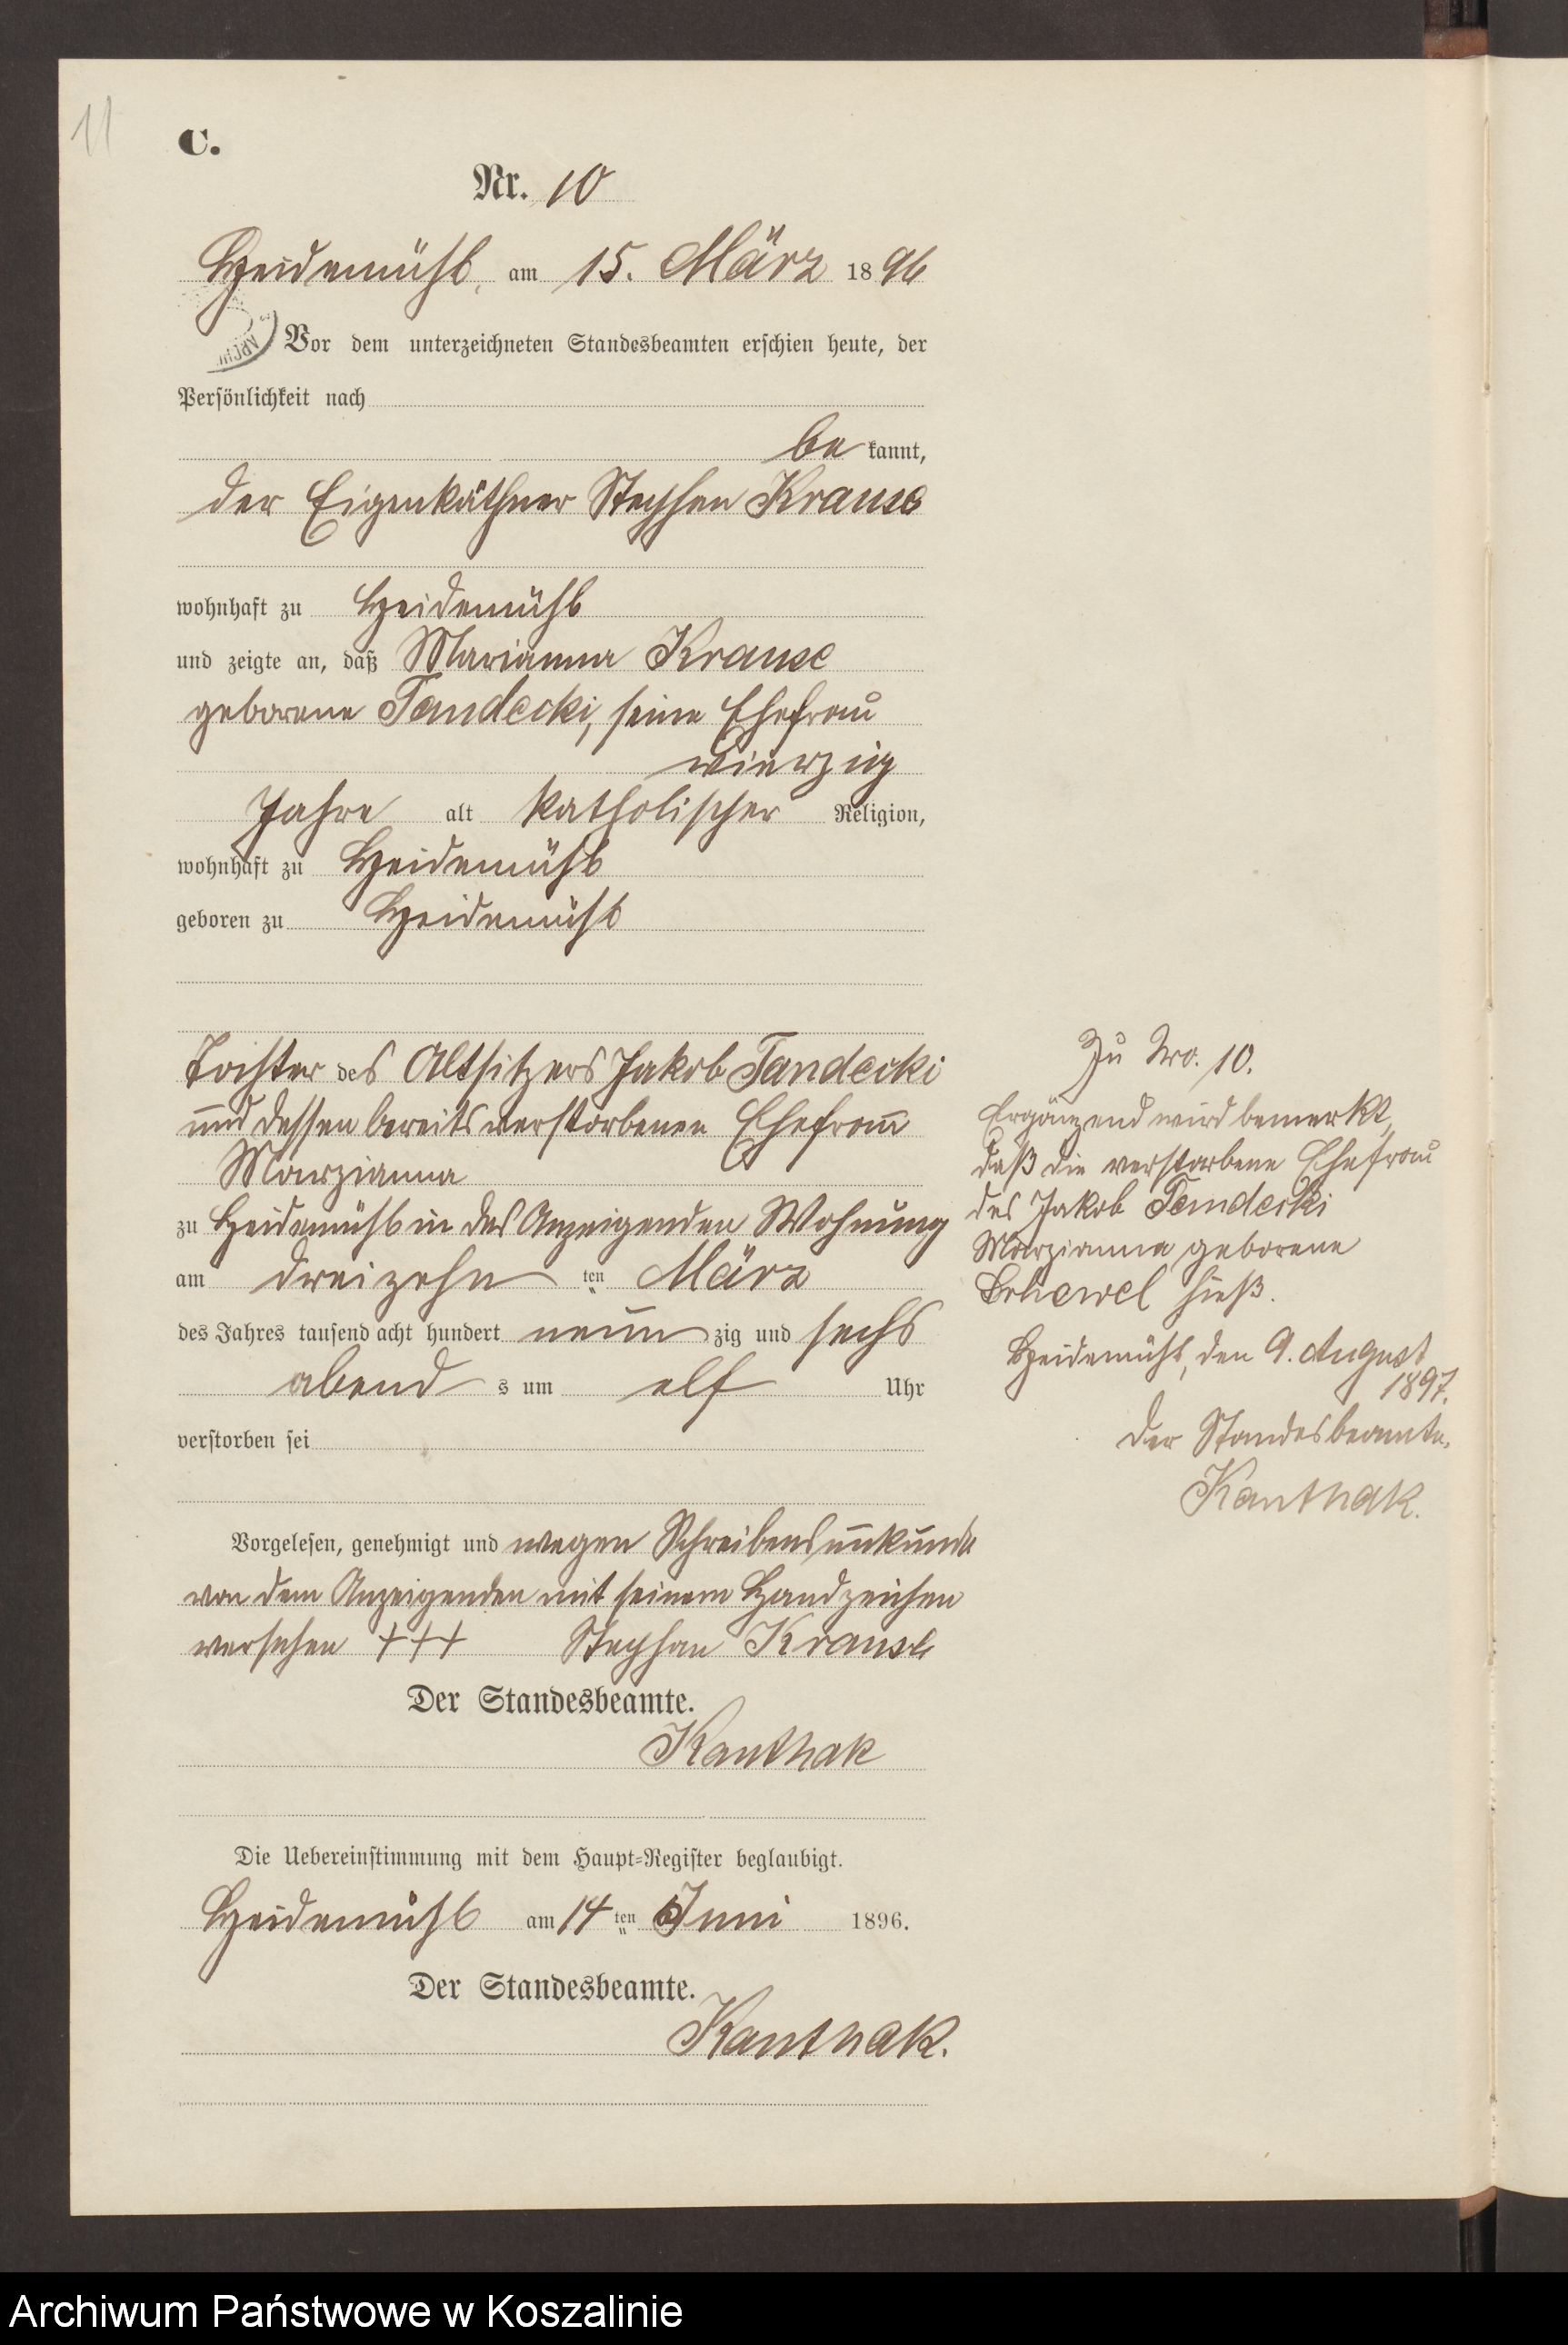 11
C.
Nr. 10
Heidemühl, am 15. März 1896
Vor dem unterzeichneten Standesbeamten erschien heute, der
Persönlichkeit nach
be kannt,
der Eigenkäthner Stephan Krause
wohnhaft zu Heidemühl
und zeigte an, daß Marianna Krause
geborene Tandecki, seine Ehefrau
vierzig
Jahre alt katholischer Religion,
wohnhaft zu Heidemühl
geboren zu Heidemühl
Tochter des Altsitzers Jakob Tandecki
und dessen bereits verstorbenen Ehefrau
Marzianna
zu Heidemühl in des Anzeigenden Wohnung
am dreizehn ten März
des Jahres tausend acht hundert neun zig und sechs
abend s um elf Uhr
verstorben sei
Vorgelesen, genehmigt und wegen Schreibensunkunde
von dem Anzeigenden mit seinem Handzeichen
versehen +++ Stephan Krause
Der Standesbeamte.
Kanthak
Die Uebereinstimmung mit dem Haupt-Register beglaubigt.
Heidemühl am 14 ten Juni 1896.
Der Standesbeamte.
Kanthak.
Zu Nro. 10.
Ergänzend wird bemerkt,
daß die verstorbene Ehefrau
des Jakob Tandecki
Marzianna geborene
hieß.
Heidemühl, den 9. August
1897.
Der Standesbeamte.
Kanthak.
Archiwum Państwowe w Koszalinie